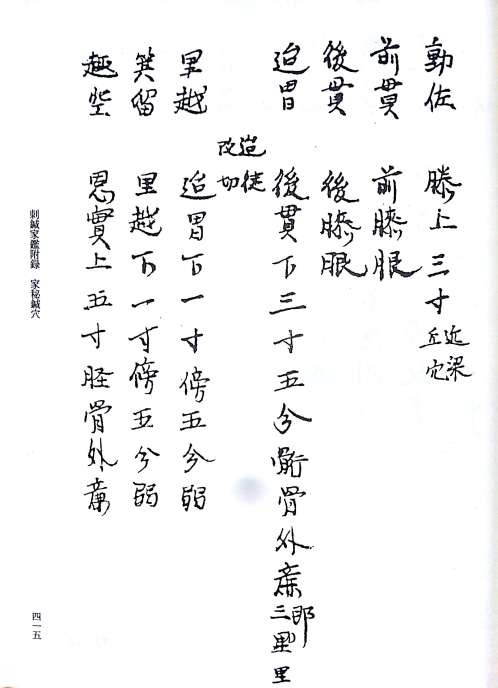 動佐　膝上三寸近梁丘穴
前貫　前膝眼
後貫　後膝眼
迫胃　後貫下三寸五分䯒骨外廉即三里
改造切徒
里越　迫胃下一寸傍五分弱
箕留　里越下一寸傍五分弱
趣㘴　思實上五寸脛骨外廉
刺鍼家鑑附録　家秘鍼穴
四一五